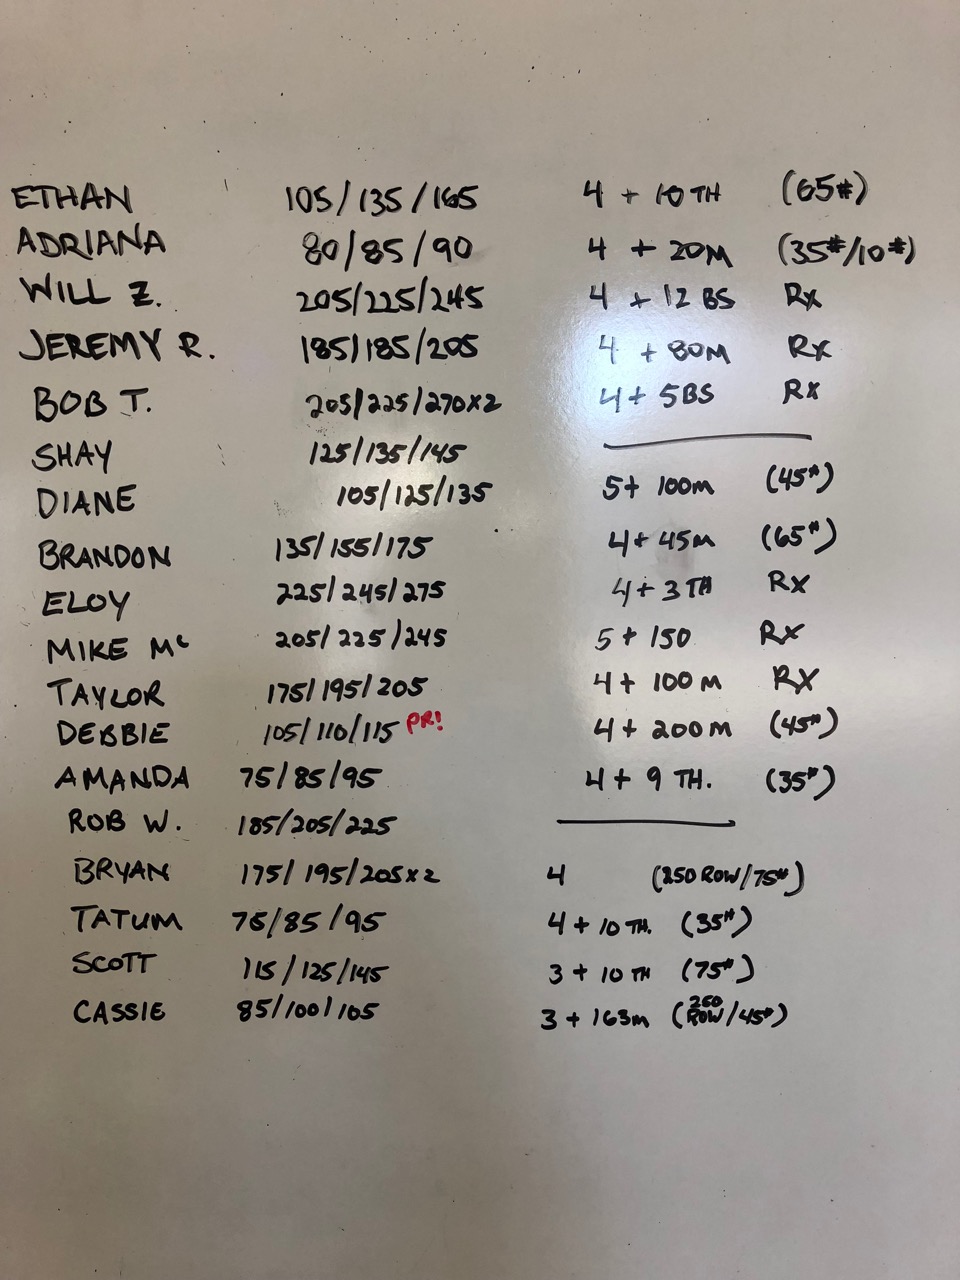 ETHAN 105/135/165 4 + 10 TH (65#)
ADRIANA 80/85/90 4 + 20M (35#/10#)
WILL Z. 205/225/245 4 + 12 BS Rx
JEREMY R. 185/185/205 4 + 80M Rx
BOB T. 205/225/270x2 4 + 5BS Rx
SHAY 125/135/145
DIANE 105/125/135 5+ 100m (45#)
BRANDON 135/155/175 4+ 45m (65#)
ELOY 225/245/275 4+ 3 TH Rx
MIKE Mc 205/225/245 5 + 150 Rx
TAYLOR 175/195/205 4+ 100 m Rx
DEBBIE 105/110/115 PR! 4 + 200 m (45#)
AMANDA 75/85/95 4 + 9 TH. (35#)
ROB W. 185/205/225
BRYAN 175/195/205x2 4 (250 ROW/75#)
TATUM 75/85/95 4 + 10 TH. (35#)
SCOTT 115/125/145 3 + 10 TH (75#)
CASSIE 85/100/105 3 + 163m (250 ROW/45#)